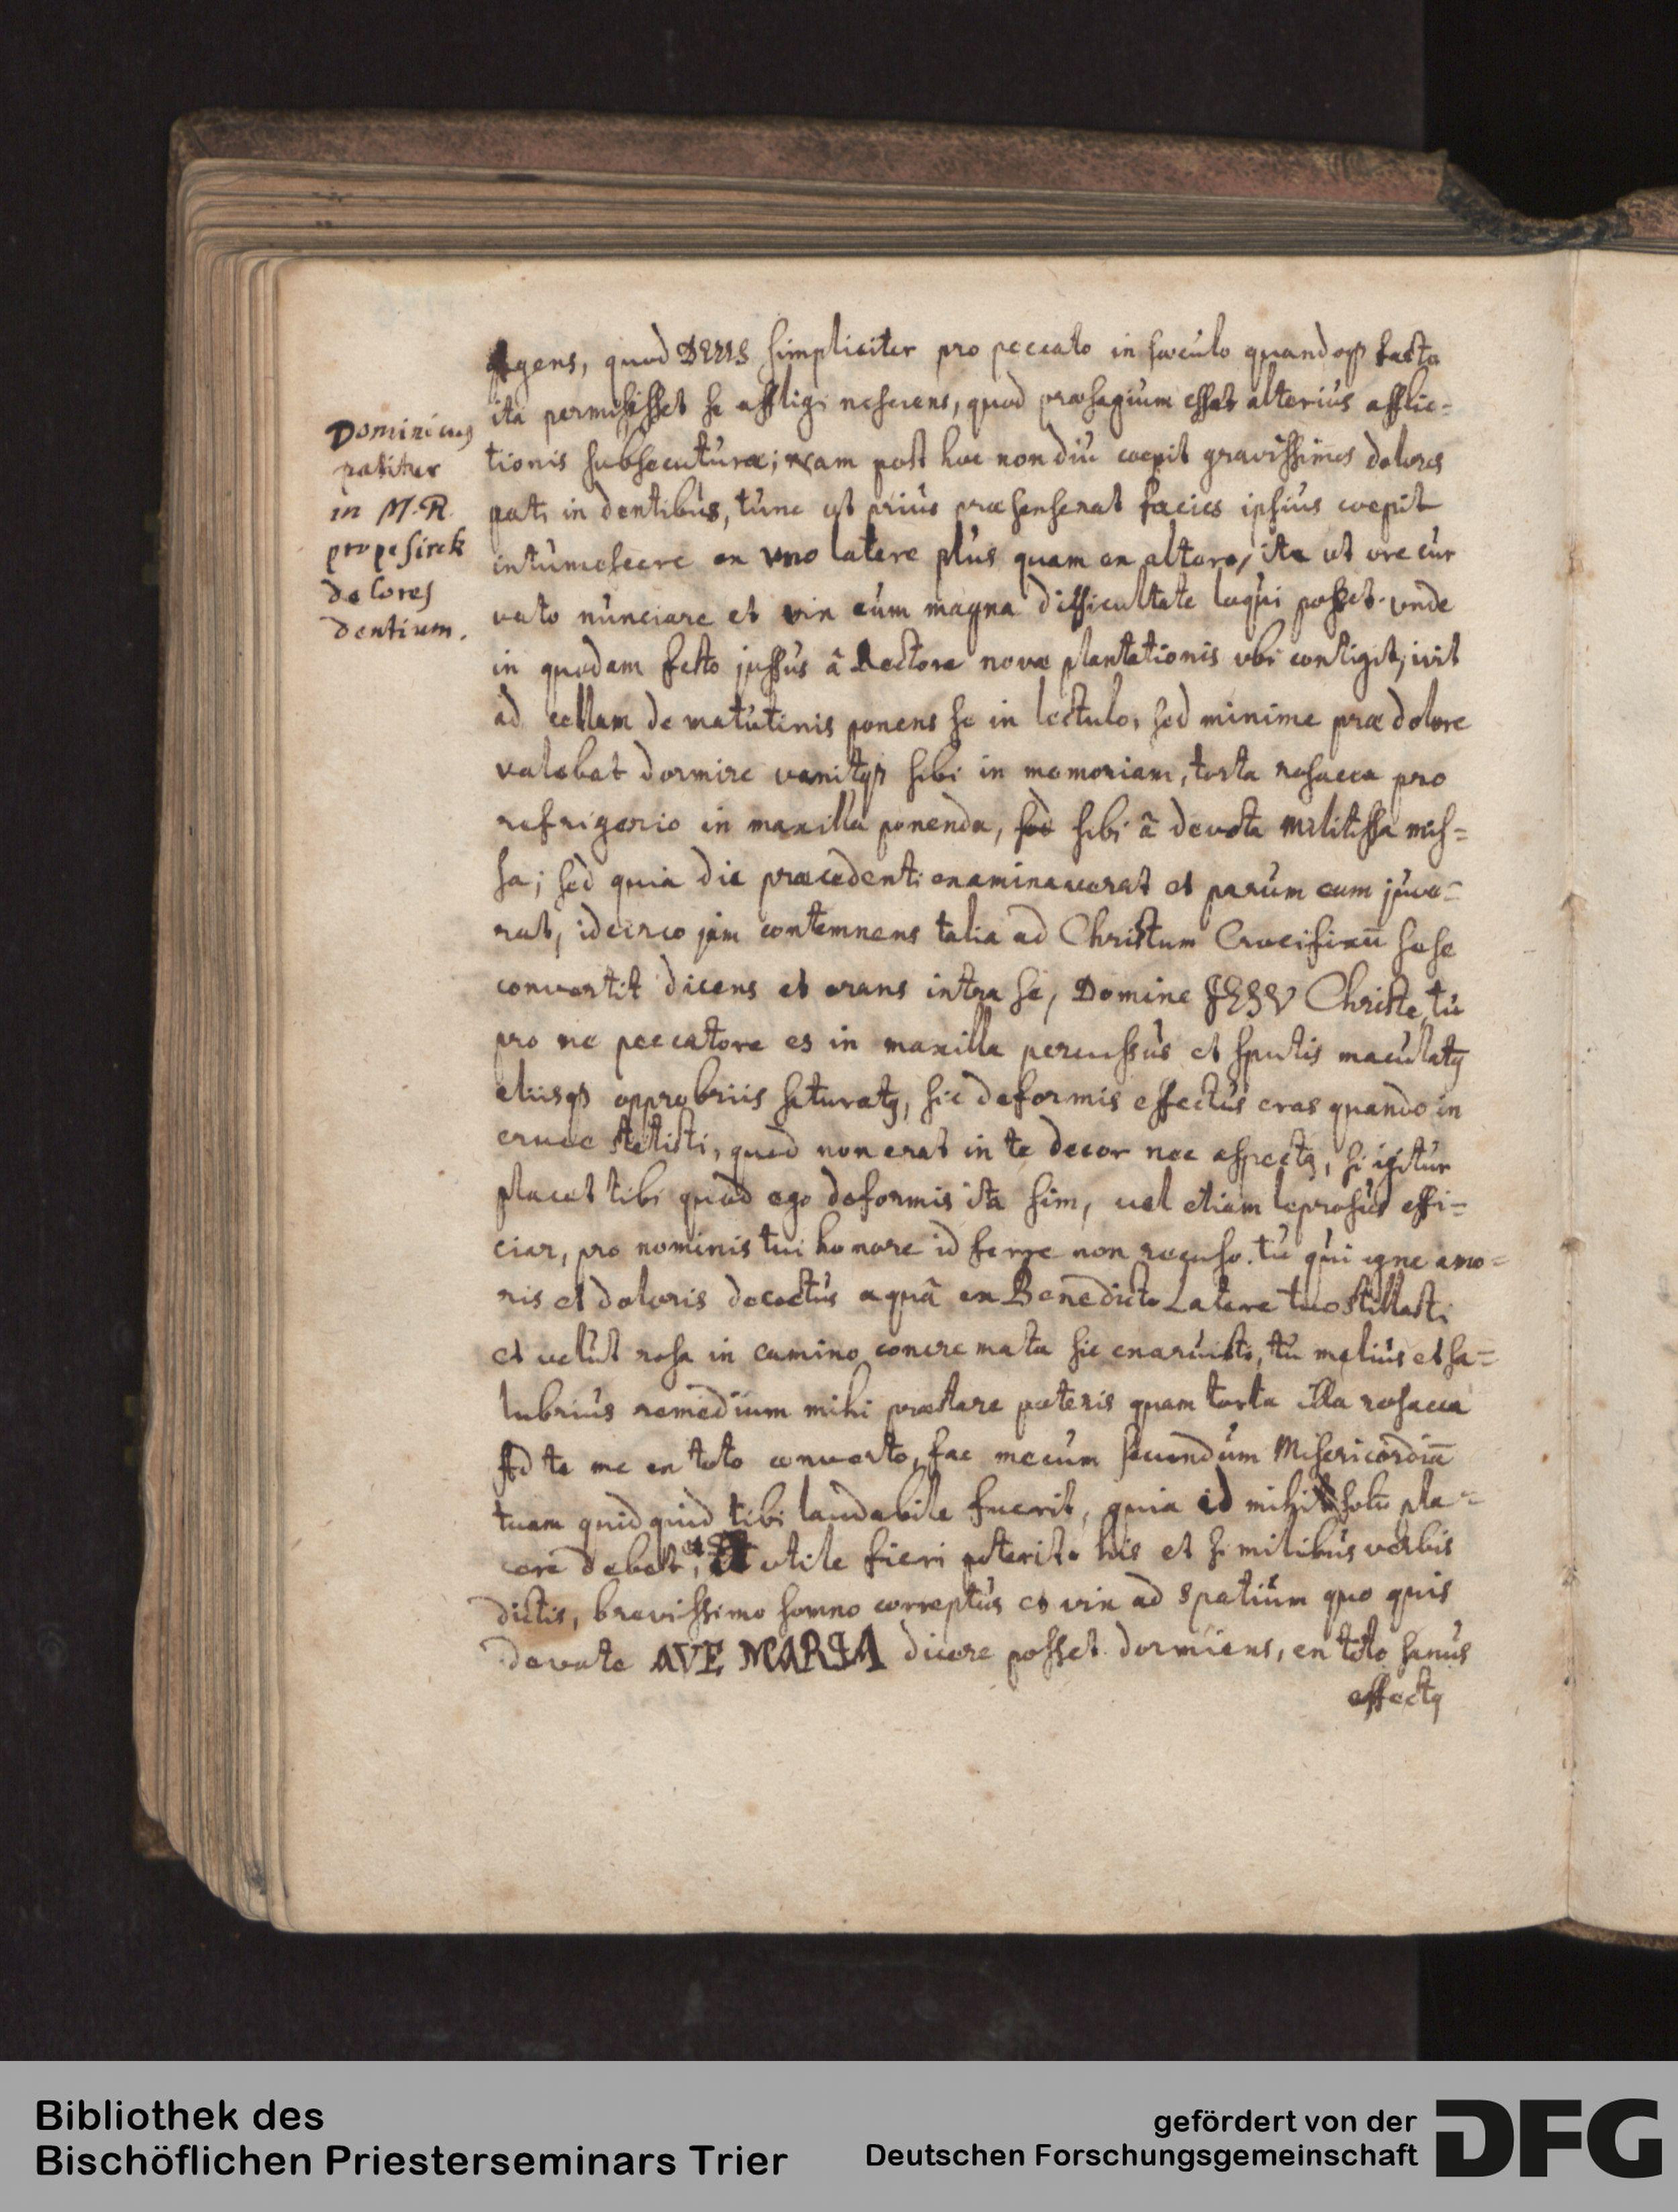 Agens, quod DEUS simpliciter pro peccato in sæculo quandoq; facto
ita permisisset se affligi nesciens, quod præsagium esset alterius afflic=
tionis subsecuturæ; nam post hoc non diu coepit gravissimos dolores
pati in dentibus, tunc ut prius præsenserat facies ipsius coepit
intumescere ex vno latere plus quam ex altero, ita ut ore cur
vato nunciare et vix cum magna difficultate loqui posset. vnde
in quodam festo jussus â Rectore novæ plantationis vbi contigit, ivit
ad cellam de matutinis ponens se in lectulo, sed minime præ dolore
valebat dormire venitq; sibi in memoriam, torta rosacea pro
refrigerio in maxilla ponenda, sibi â devota militissa mis=
sa; sed quia die præcedenti examinaverat et parum eum juva=
rat, idcirco jam contemnens talia ad Christum Crucifixū sese
convertit dicens et orans intra se, Domine JESV Christe, tu
pro me peccatore es in maxilla percussus et sputis maculatꝯ
aliisq; opprobriis saturatꝯ, sic deformis effectus eras quando in
cruce stetisti, quod non erat in te decor nec aspectꝯ, si igitur
placet tibi quod ego deformis ita sim, vel etiam leprosus effi=
ciar, pro nominis tui honore id ferre non recuso. tu qui igne amo=
ris et doloris decoctus aquâ ex Benedicto Latere tuo stillasti
et velut rosa in camino concremata sic exaruisti, tu melius et sa=
lubrius remedium mihi præstare poteris quam torta illa rosacea
Ad te me ex toto converto, fac mecum secundum Misericordiā
tuam quidquid tibi laudabile fuerit, quia id mihi solū pla=
cere debet, et utile fieri poterit. his et similibus verbis
dictis, brevissimo somno correptus et vix ad spatium quo quis
devote AVE MARIA dicere posset dormiens, ex toto sanus
effectꝯ
Dominicus
patitur
in M. R.
prope sirck
dolores
dentium.
Bibliothek des
Bischöflichen Priesterseminars Trier
gefördert von der
Deutschen Forschungsgemeinschaft
DFG